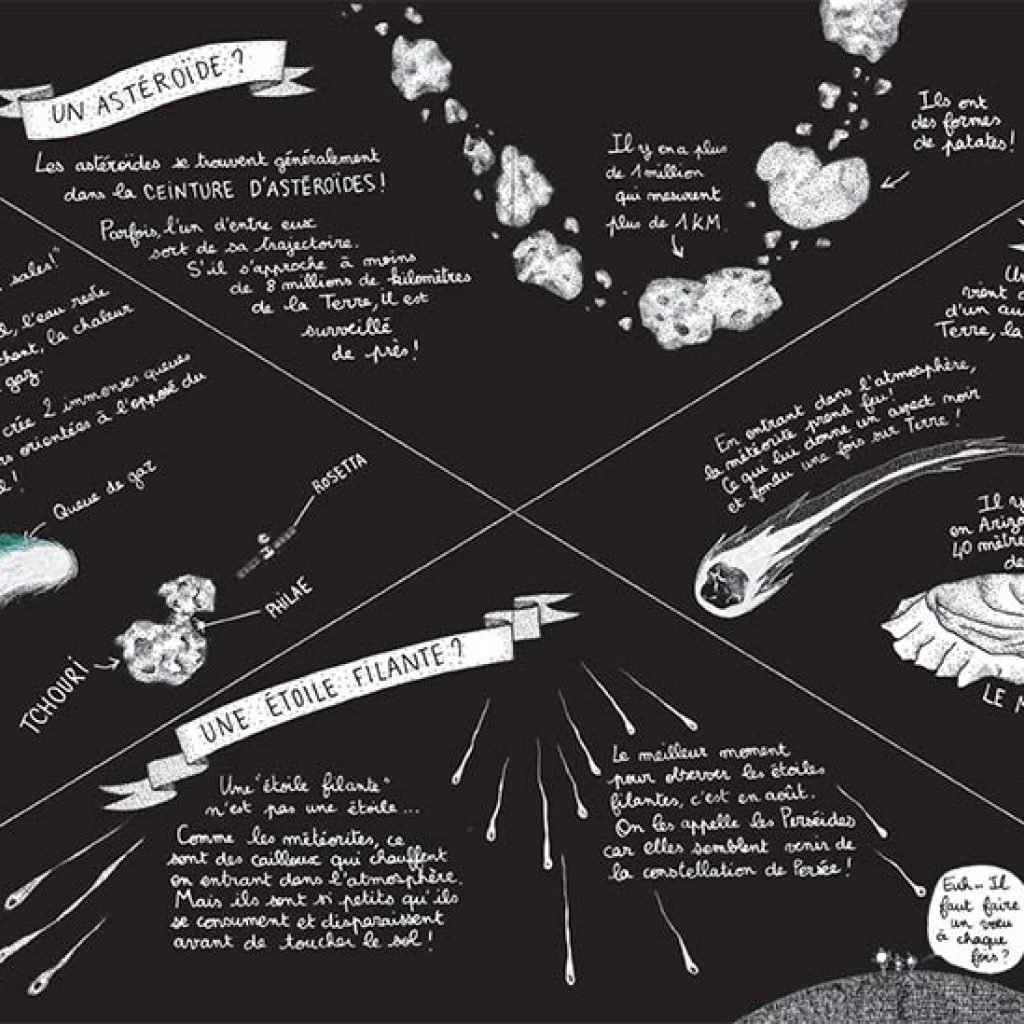 UN ASTÉROÏDE ?
Les astéroïdes se trouvent généralement
dans la CEINTURE D'ASTÉROÏDES !
Parfois, l'un d'entre eux
sort de sa trajectoire.
S'il s'approche à moins
de 8 millions de kilomètres
de la Terre, il est
surveillé
de près !
Il y en a plus
de 1 million
qui mesurent
plus de 1 KM.
Ils ont
des formes
de patates !
sales !"
l'eau reste
la chaleur
gaz.
crée 2 immenses queues
orientées à l'opposé du
!
Queue de gaz
ROSETTA
PHILAE
TCHOURI
vient
d'un au
Terre, la
En entrant dans l'atmosphère,
la météorite prend feu !
Ce qui lui donne un aspect noir
et fondu une fois sur Terre !
Il y
en Arizo
40 mètre
de
LE M
UNE ÉTOILE FILANTE ?
Une "étoile filante"
n'est pas une étoile ...
Comme les météorites, ce
sont des cailloux qui chauffent
en entrant dans l'atmosphère.
Mais ils sont si petits qu'ils
se consument et disparaissent
avant de toucher le sol !
Le meilleur moment
pour observer les étoiles
filantes, c'est en août.
On les appelle les Perséides
car elles semblent venir de
la constellation de Persée !
Euh... Il
faut faire
un vœu
à chaque
fois ?